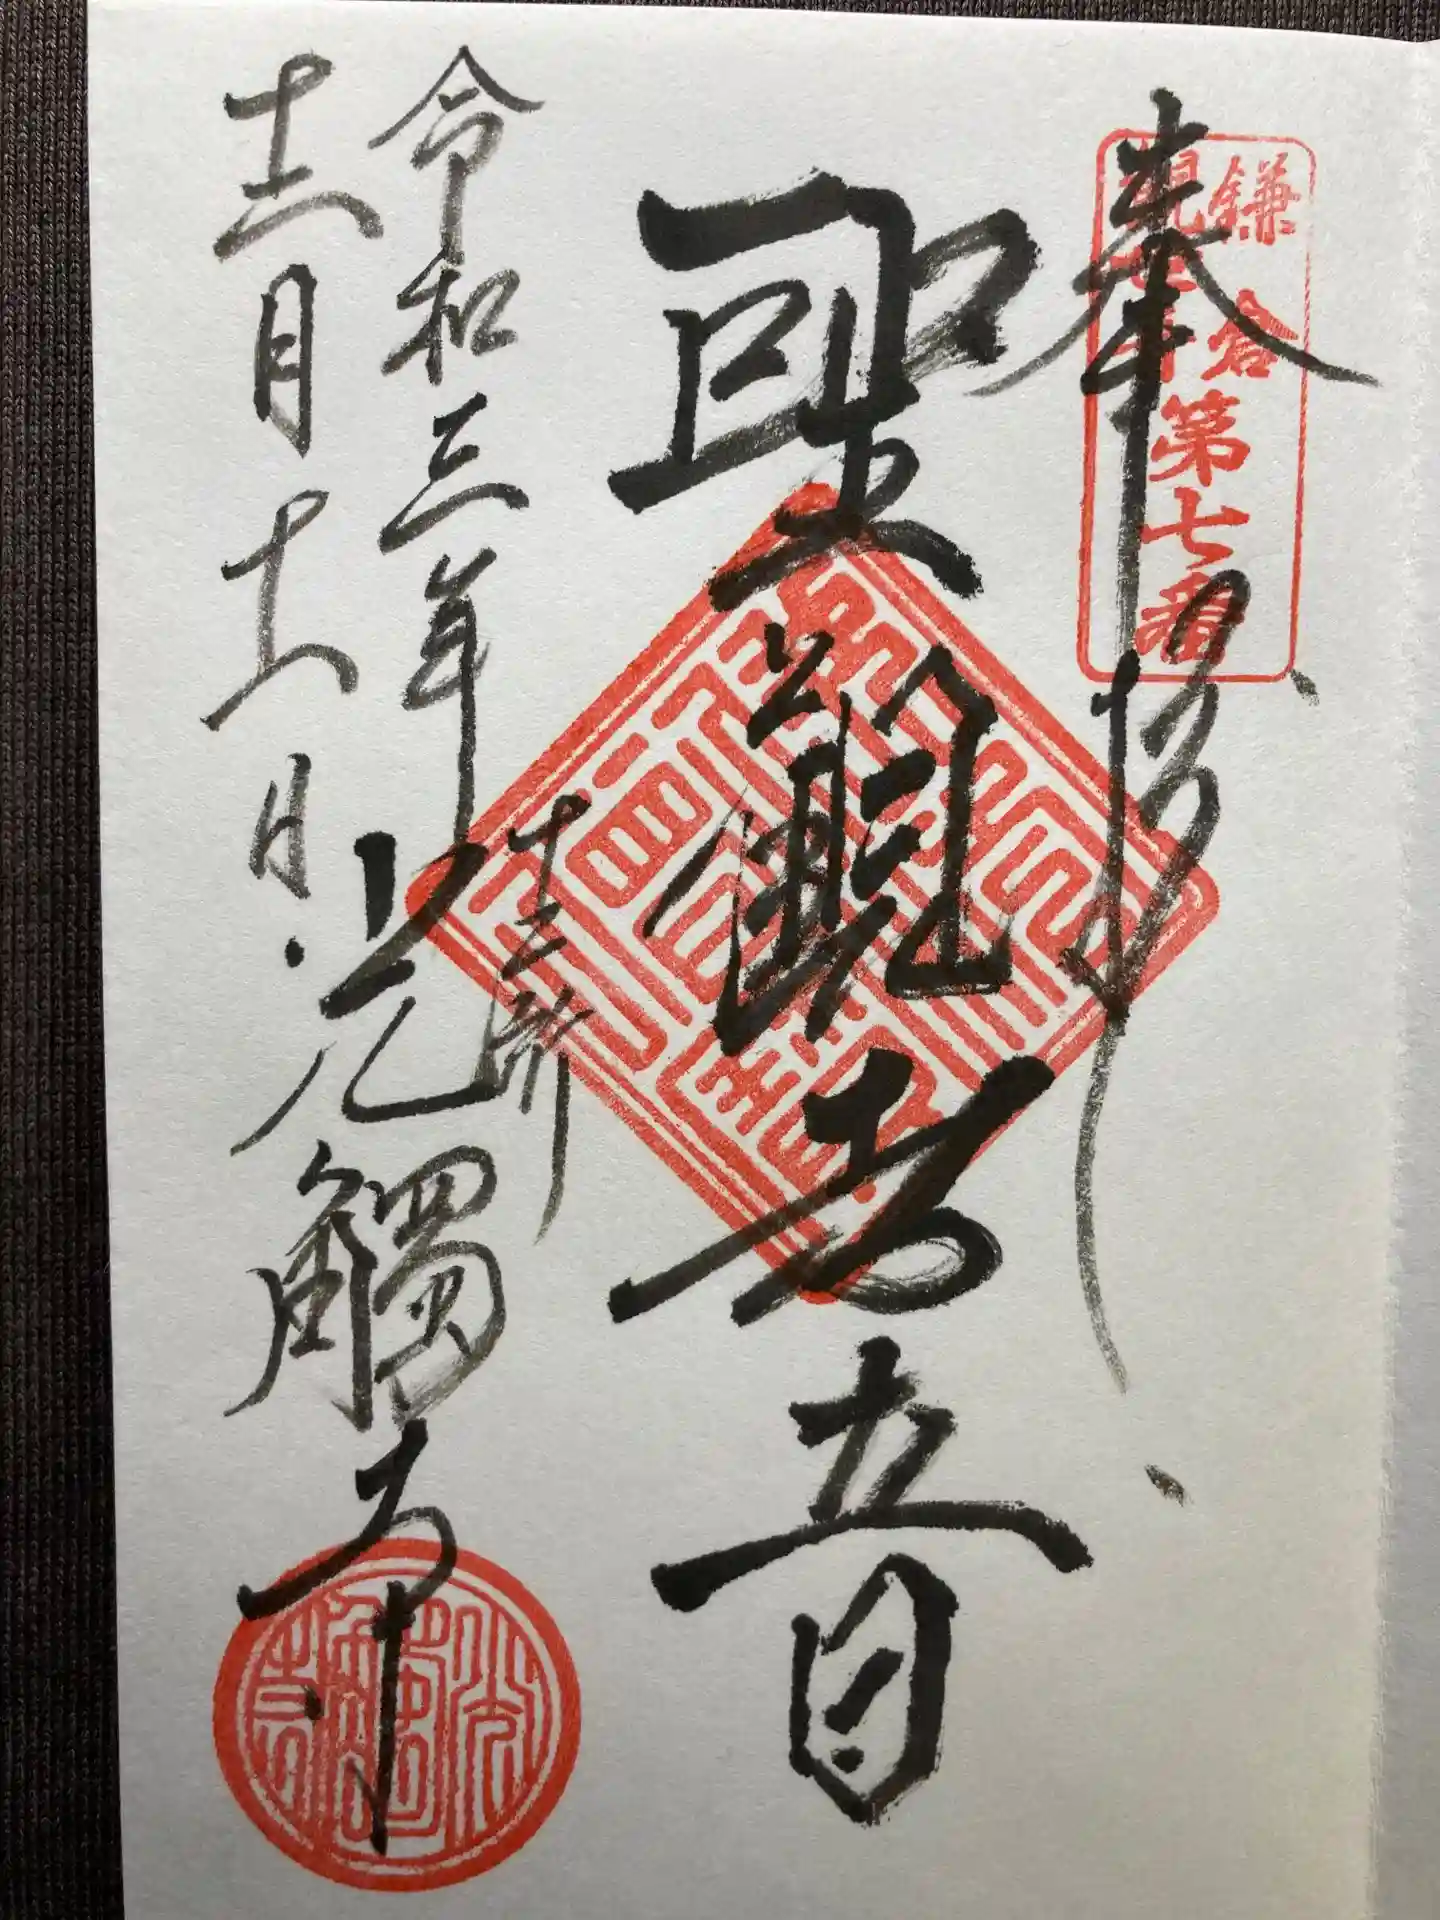 奉拝
鎌倉
観世音
第七番
聖觀世音
令和三年
十二月十一日
十二所
光觸寺